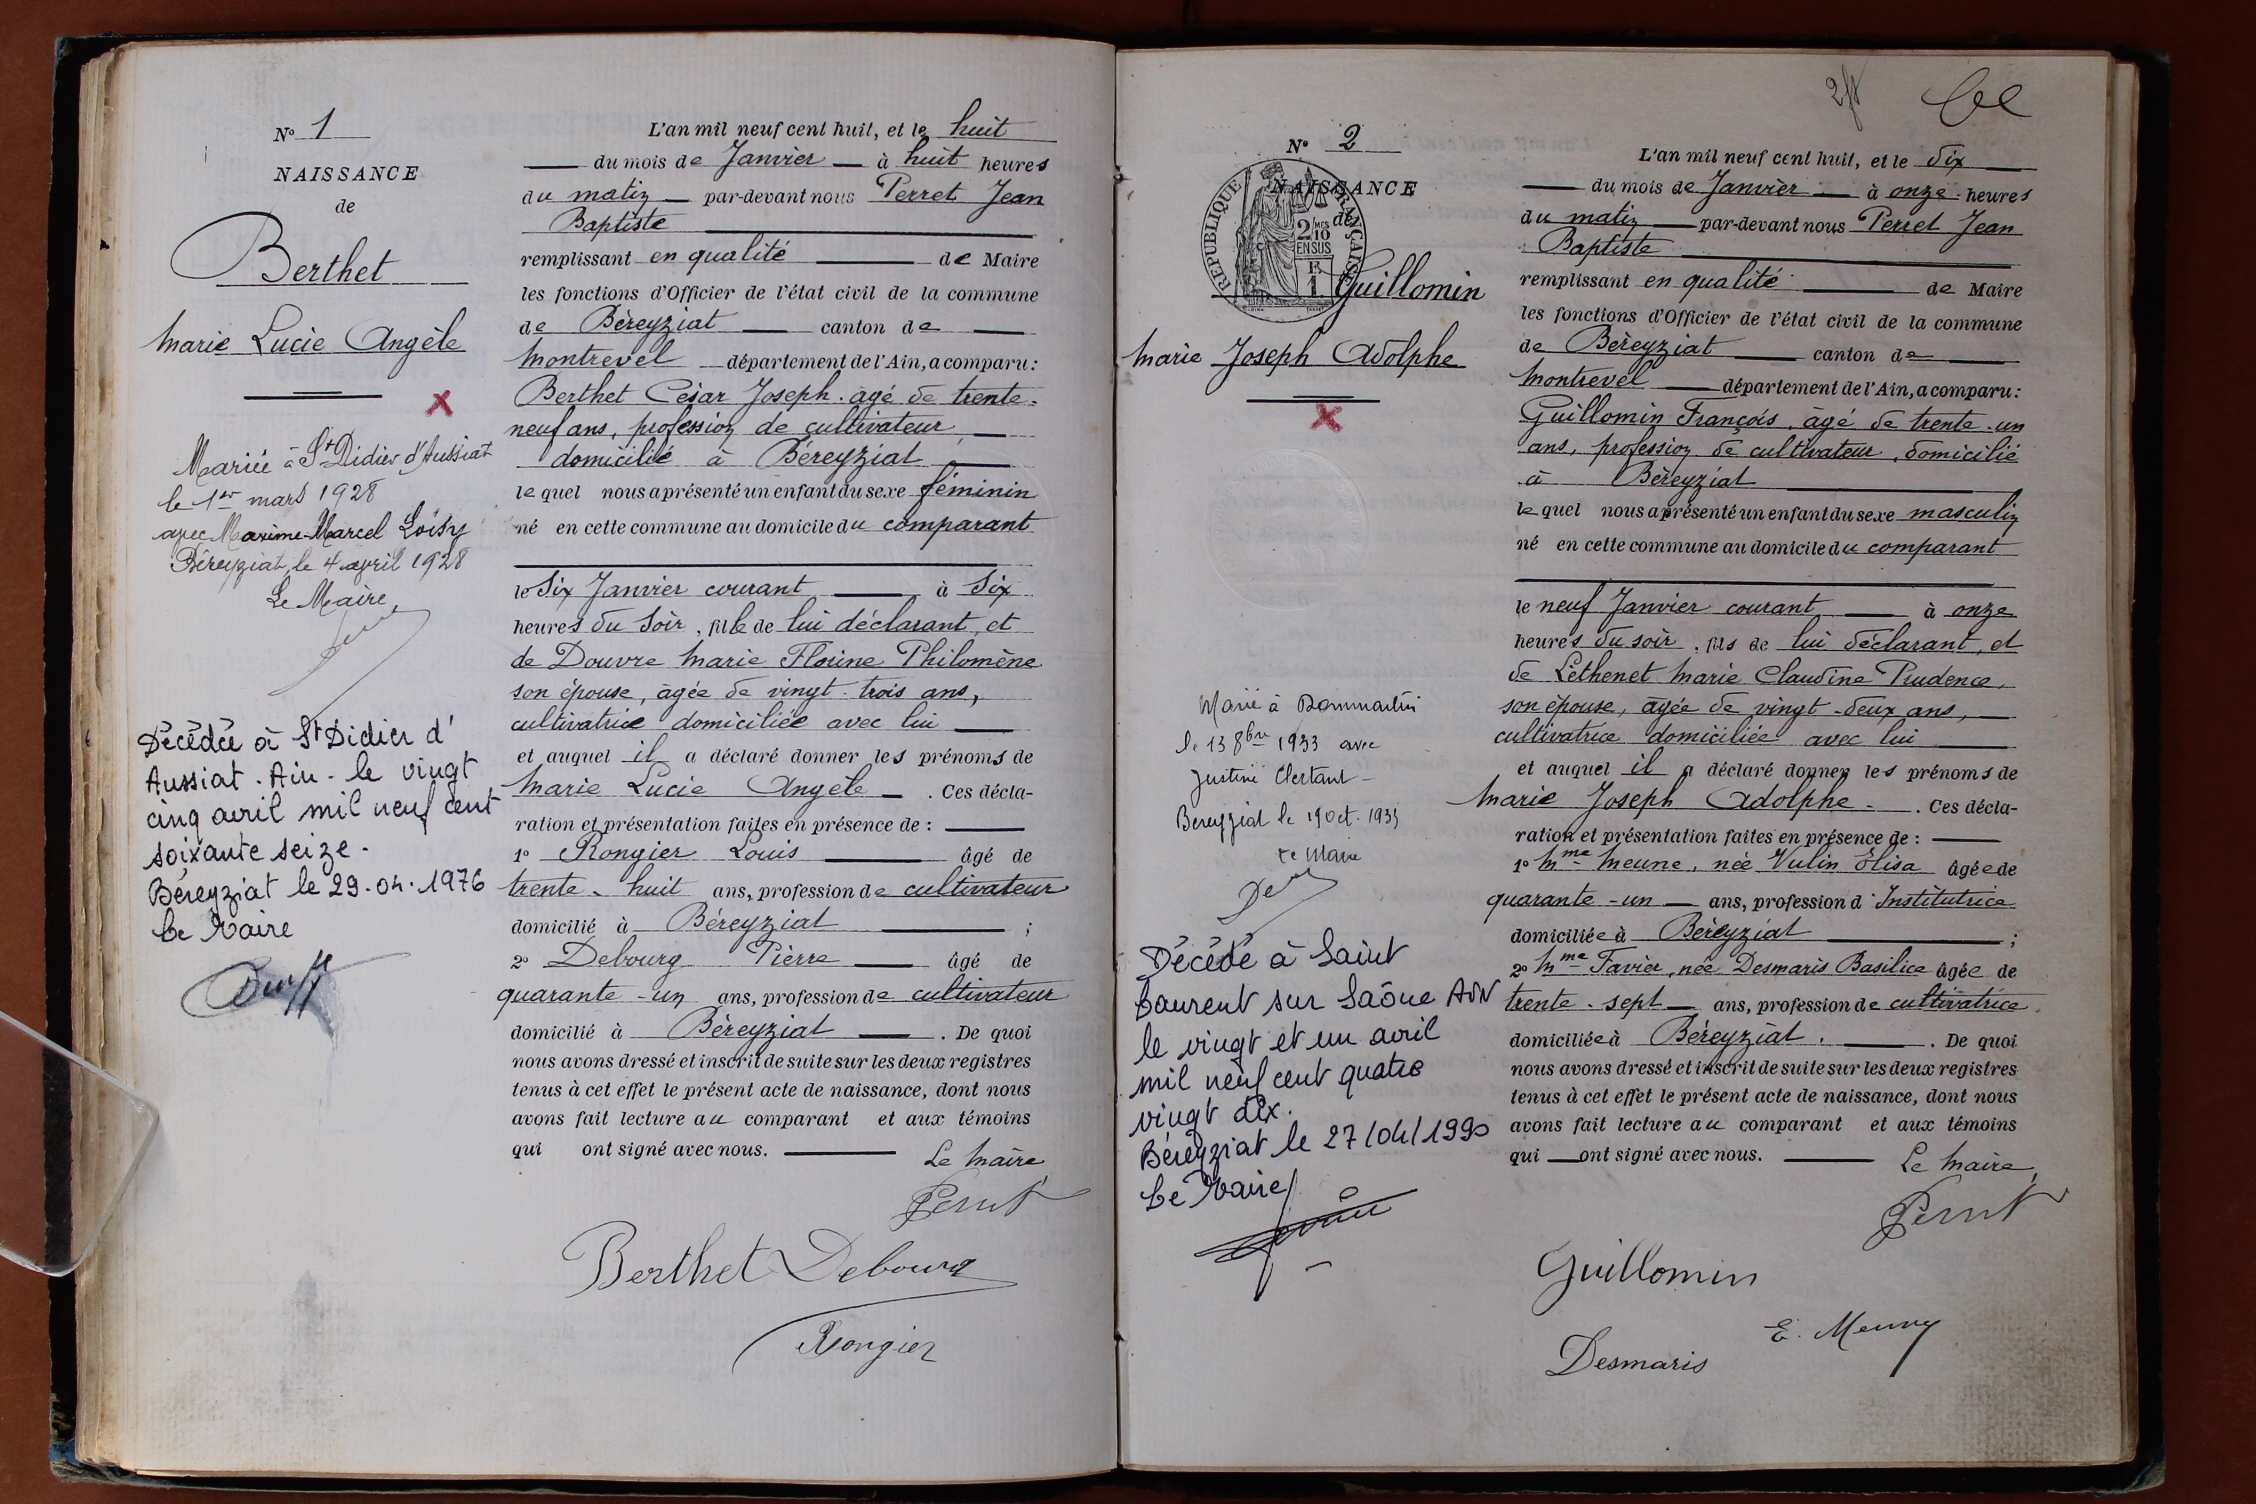 N° 1
NAISSANCE
de
Berthet
Marie Lucie Angèle
X
Mariée à St Didier d'Aussiat
le 1er mars 1928
avec Maxime-Marcel Loisy
Béreyziat, le 4 avril 1928
Le Maire,
Décédée à St Didier d'
Aussiat - Ain - le vingt
cinq avril mil neuf cent
soixante seize.
Béreyziat le 29.04.1976
Le Maire
L'an mil neuf cent huit, et le huit
du mois de Janvier à huit heures
du matin par-devant nous Perret Jean
Baptiste
remplissant en qualité de Maire
les fonctions d'Officier de l'état civil de la commune
de Béreyziat canton de
Montrevel département de l'Ain, a comparu :
Berthet César Joseph, âgé de trente-
neuf ans, profession de cultivateur,
domicilié à Béreyziat
lequel nous a présenté un enfant du sexe féminin
né en cette commune au domicile du comparant
le Six Janvier courant à Six
heures du Soir, fille de lui déclarant, et
de Douvre Marie Florine Philomène
son épouse, âgée de vingt-trois ans,
cultivatrice domiciliée avec lui
et auquel il a déclaré donner les prénoms de
Marie Lucie Angèle . Ces décla-
ration et présentation faites en présence de :
1° Rongier Louis âgé de
trente-huit ans, profession de cultivateur
domicilié à Béreyziat ;
2° Debourg Pierre âgé de
quarante-un ans, profession de cultivateur
domicilié à Béreyziat . De quoi
nous avons dressé et inscrit de suite sur les deux registres
tenus à cet effet le présent acte de naissance, dont nous
avons fait lecture au comparant et aux témoins
qui ont signé avec nous.
Le Maire
Perret
Berthet Debourg
Rongier
N° 2
NAISSANCE
de
REPUBLIQUE FRANÇAISE
2/10
EN SUS
Guillomin
Marie Joseph Adolphe
X
Marié à Dommartin
le 13 8bre 1933 avec
Justine Clertant
Béreyziat le 19 Oct. 1933
Le Maire
Décédé à Saint
Laurent sur Saône AIN
le vingt et un avril
mil neuf cent quatre
vingt dix.
Béreyziat le 27/04/1990
Le Maire
L'an mil neuf cent huit, et le dix
du mois de Janvier à onze heures
du matin par-devant nous Perret Jean
Baptiste
remplissant en qualité de Maire
les fonctions d'Officier de l'état civil de la commune
de Béreyziat canton de
Montrevel département de l'Ain, a comparu :
Guillomin François, âgé de trente-un
ans, profession de cultivateur, domicilié
à Béreyziat
lequel nous a présenté un enfant du sexe masculin
né en cette commune au domicile du comparant
le neuf Janvier courant à onze
heures du soir, fils de lui déclarant, et
de Léthenet Marie Claudine Prudence,
son épouse, âgée de vingt-deux ans,
cultivatrice domiciliée avec lui
et auquel il a déclaré donner les prénoms de
Marie Joseph Adolphe . Ces décla-
ration et présentation faites en présence de :
1° Mme Meune, née Vulin Élisa âgée de
quarante-un ans, profession d'Institutrice
domiciliée à Béreyziat ;
2° Mme Favier, née Desmaris Basilice âgée de
trente-sept ans, profession de cultivatrice
domiciliée à Béreyziat . De quoi
nous avons dressé et inscrit de suite sur les deux registres
tenus à cet effet le présent acte de naissance, dont nous
avons fait lecture au comparant et aux témoins
qui ont signé avec nous.
Le Maire,
Perret
Guillomin
E. Meuny
Desmaris